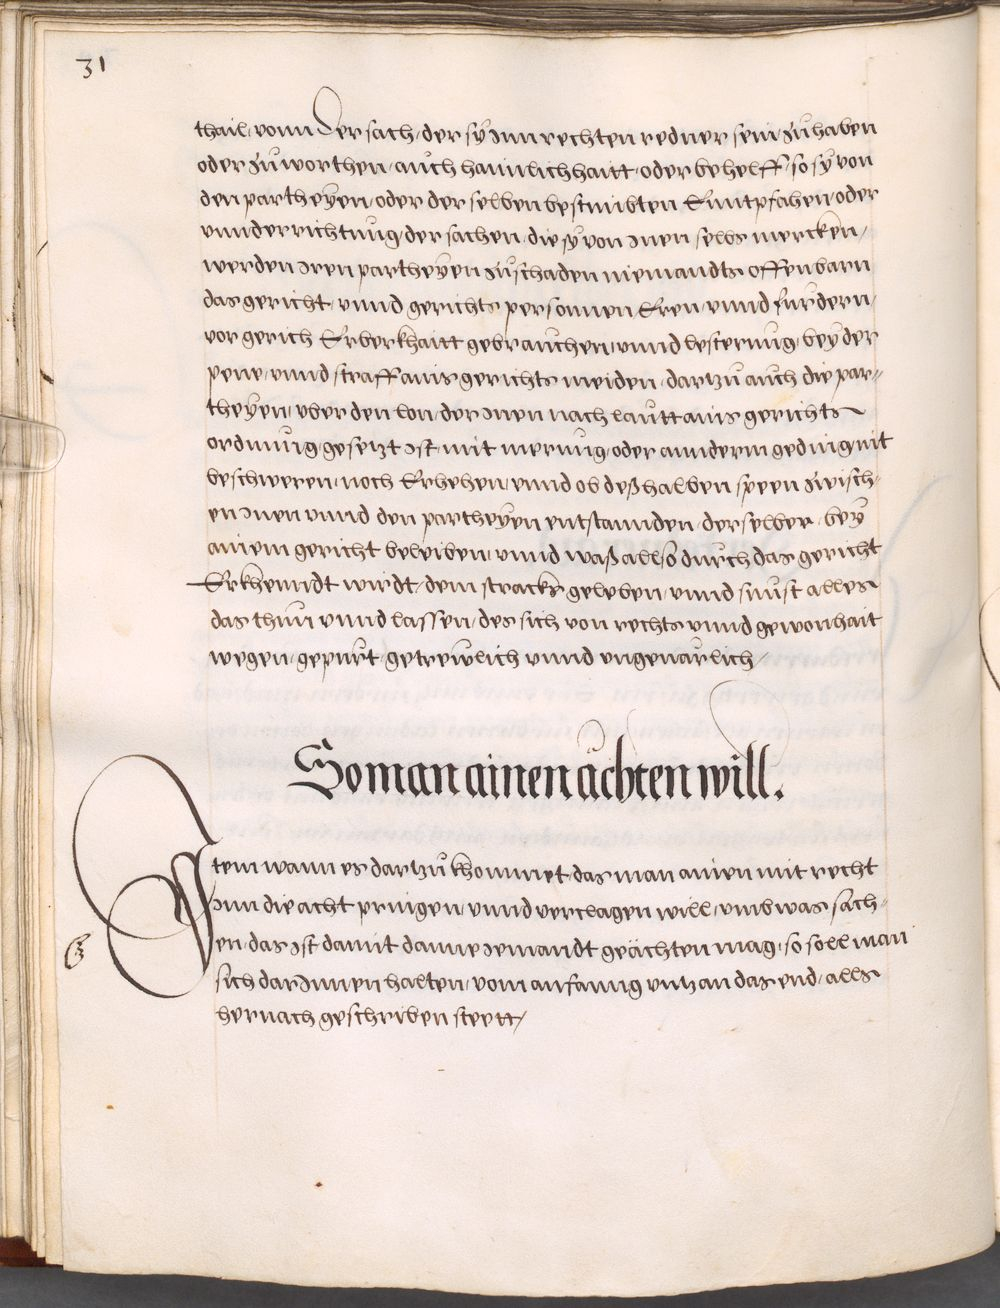 31
thail, vonn der sach, der sy Inn rechten redner sein, zu haben
oder zuworthen, auch haimlichhaitt, oder behelff, so sy von
den partheyen, oder der selben bestimbten Emtpfahen, oder
vnnderrichtung der sachen, die sy von Inen selbs mercken,
werden Iren partheyen zuschaden niemandts offenbarn
das gericht, vnnd gerichts personnen Eren, vnnd furdern,
vor gerich Erberkhaitt gebrauchen, vnnd lesterung, bey der
pene, vnnd straff ains gerichts meiden, dartzu auch die par„
theyen, vber den lon, der Inen nach lautt ains gerichts
ordnung, gesetzt Ist, mit merung, oder anndern geding nit
beschweren, noch Erhehen, vnnd ob deßhalben speen zwisch„
en Inen vnnd den partheyen entstannden, derselber, bey
ainem gericht beleiben, vnnd waß allso durch das gericht
Erkhenndt wirdt, dem stracks geleben, vnnd sunst alles
das thun vnnd lassen, des sich von rechts vnnd gewonhait
wegen, gepurt, getrewlich vnnd vngenärlich,
So man ainen ächten will.
Item wann es dartzu khommet, das man ainen mit recht
Inn die acht pringen, vnnd verclagen will, vmb was sach„
en, das Ist damit danne Iemandt geächten mag, so soll man
sich dar Innen halten, vom anfanng vntz an das end, alls
hernach geschriben steett,